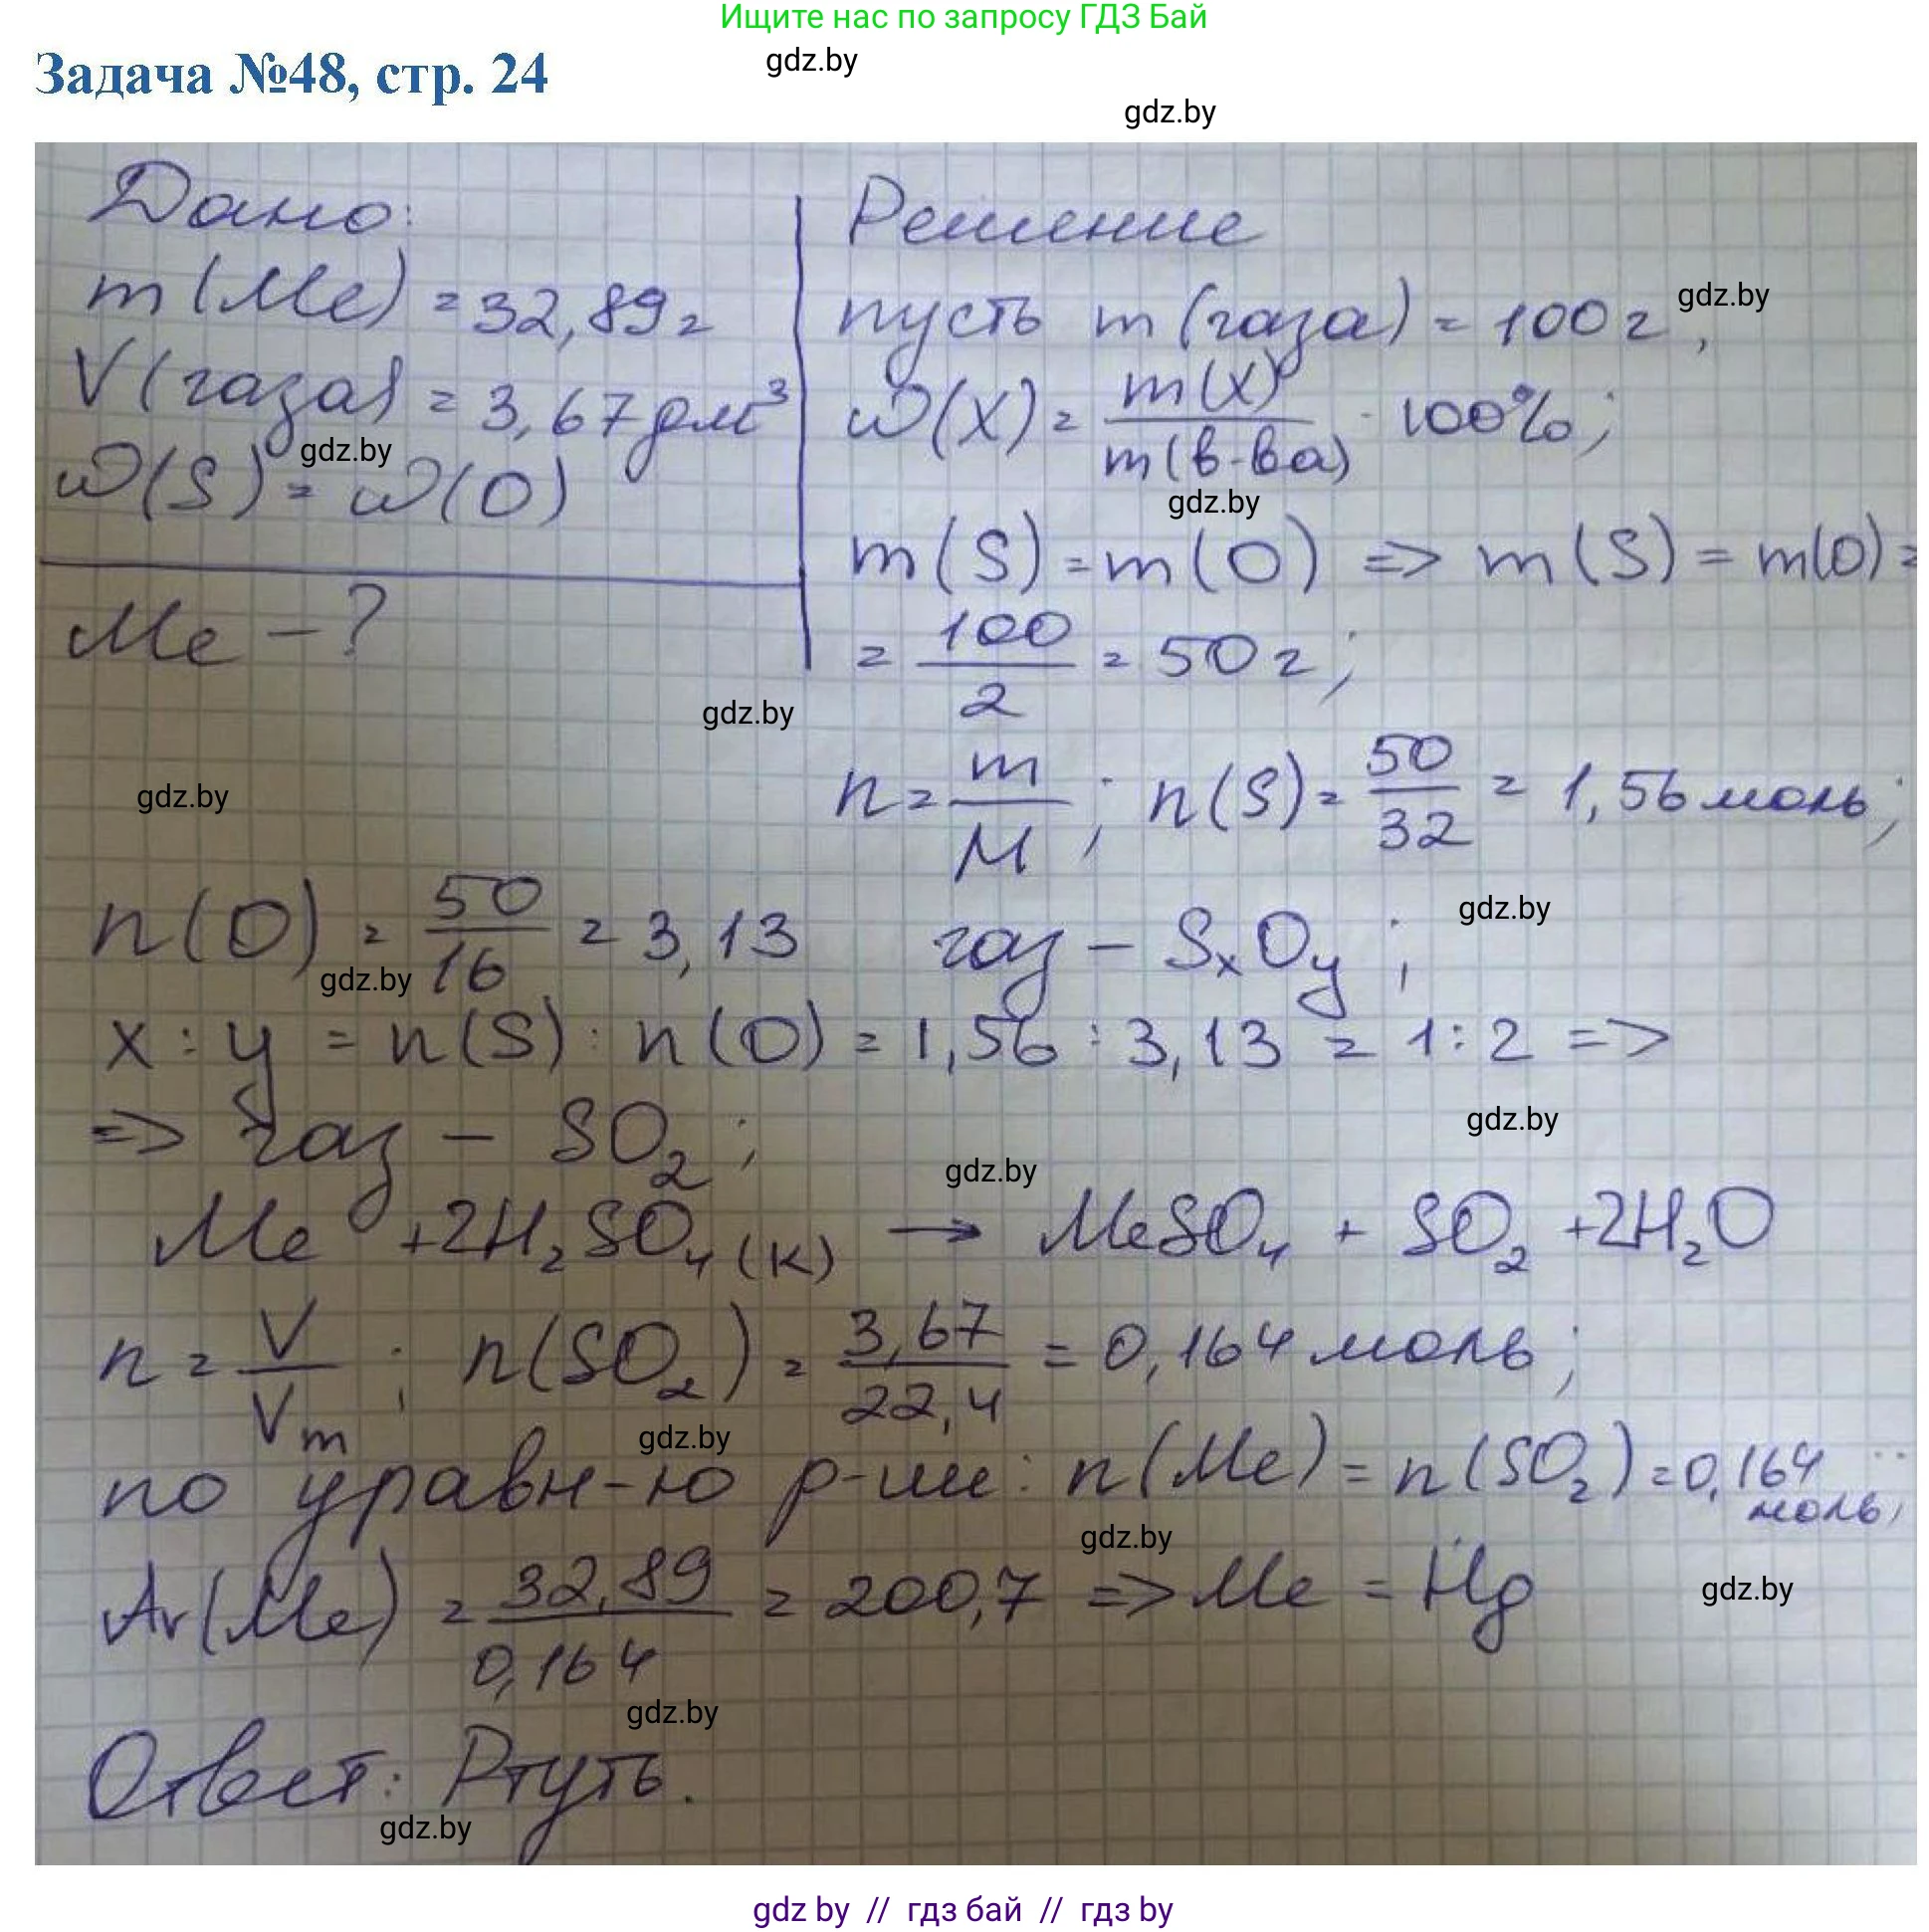 Ищите нас по запросу ГДЗ Бай
gdz.by
Задача №48, стр. 24
gdz.by
Дано:
m(Me) = 32,89 г
V(газа) = 3,67 дм³
gdz.by
ω(S) = ω(O)
Me - ?
Решение
пусть m(газа) = 100 г,
gdz.by
ω(X) = m(X) / m(в-ва) · 100%;
gdz.by
m(S) = m(O) => m(S) = m(O) =
= 100/2 = 50 г;
gdz.by
gdz.by
n = m/M; n(S) = 50/32 = 1,56 моль;
n(O) = 50/16 = 3,13 газ - SxOy;
gdz.by
gdz.by
x : y = n(S) : n(O) = 1,56 : 3,13 = 1:2 =>
=> газ - SO₂;
gdz.by
gdz.by
Me + 2H₂SO₄(к) → MeSO₄ + SO₂ + 2H₂O
n = V/Vm; n(SO₂) = 3,67/22,4 = 0,164 моль;
gdz.by
по уравн-ю р-ии: n(Me) = n(SO₂) = 0,164 моль;
gdz.by
Ar(Me) = 32,89/0,164 = 200,7 => Me = Hg
gdz.by
gdz.by
Ответ: Ртуть.
gdz.by
gdz by // гдз бай // гдз by